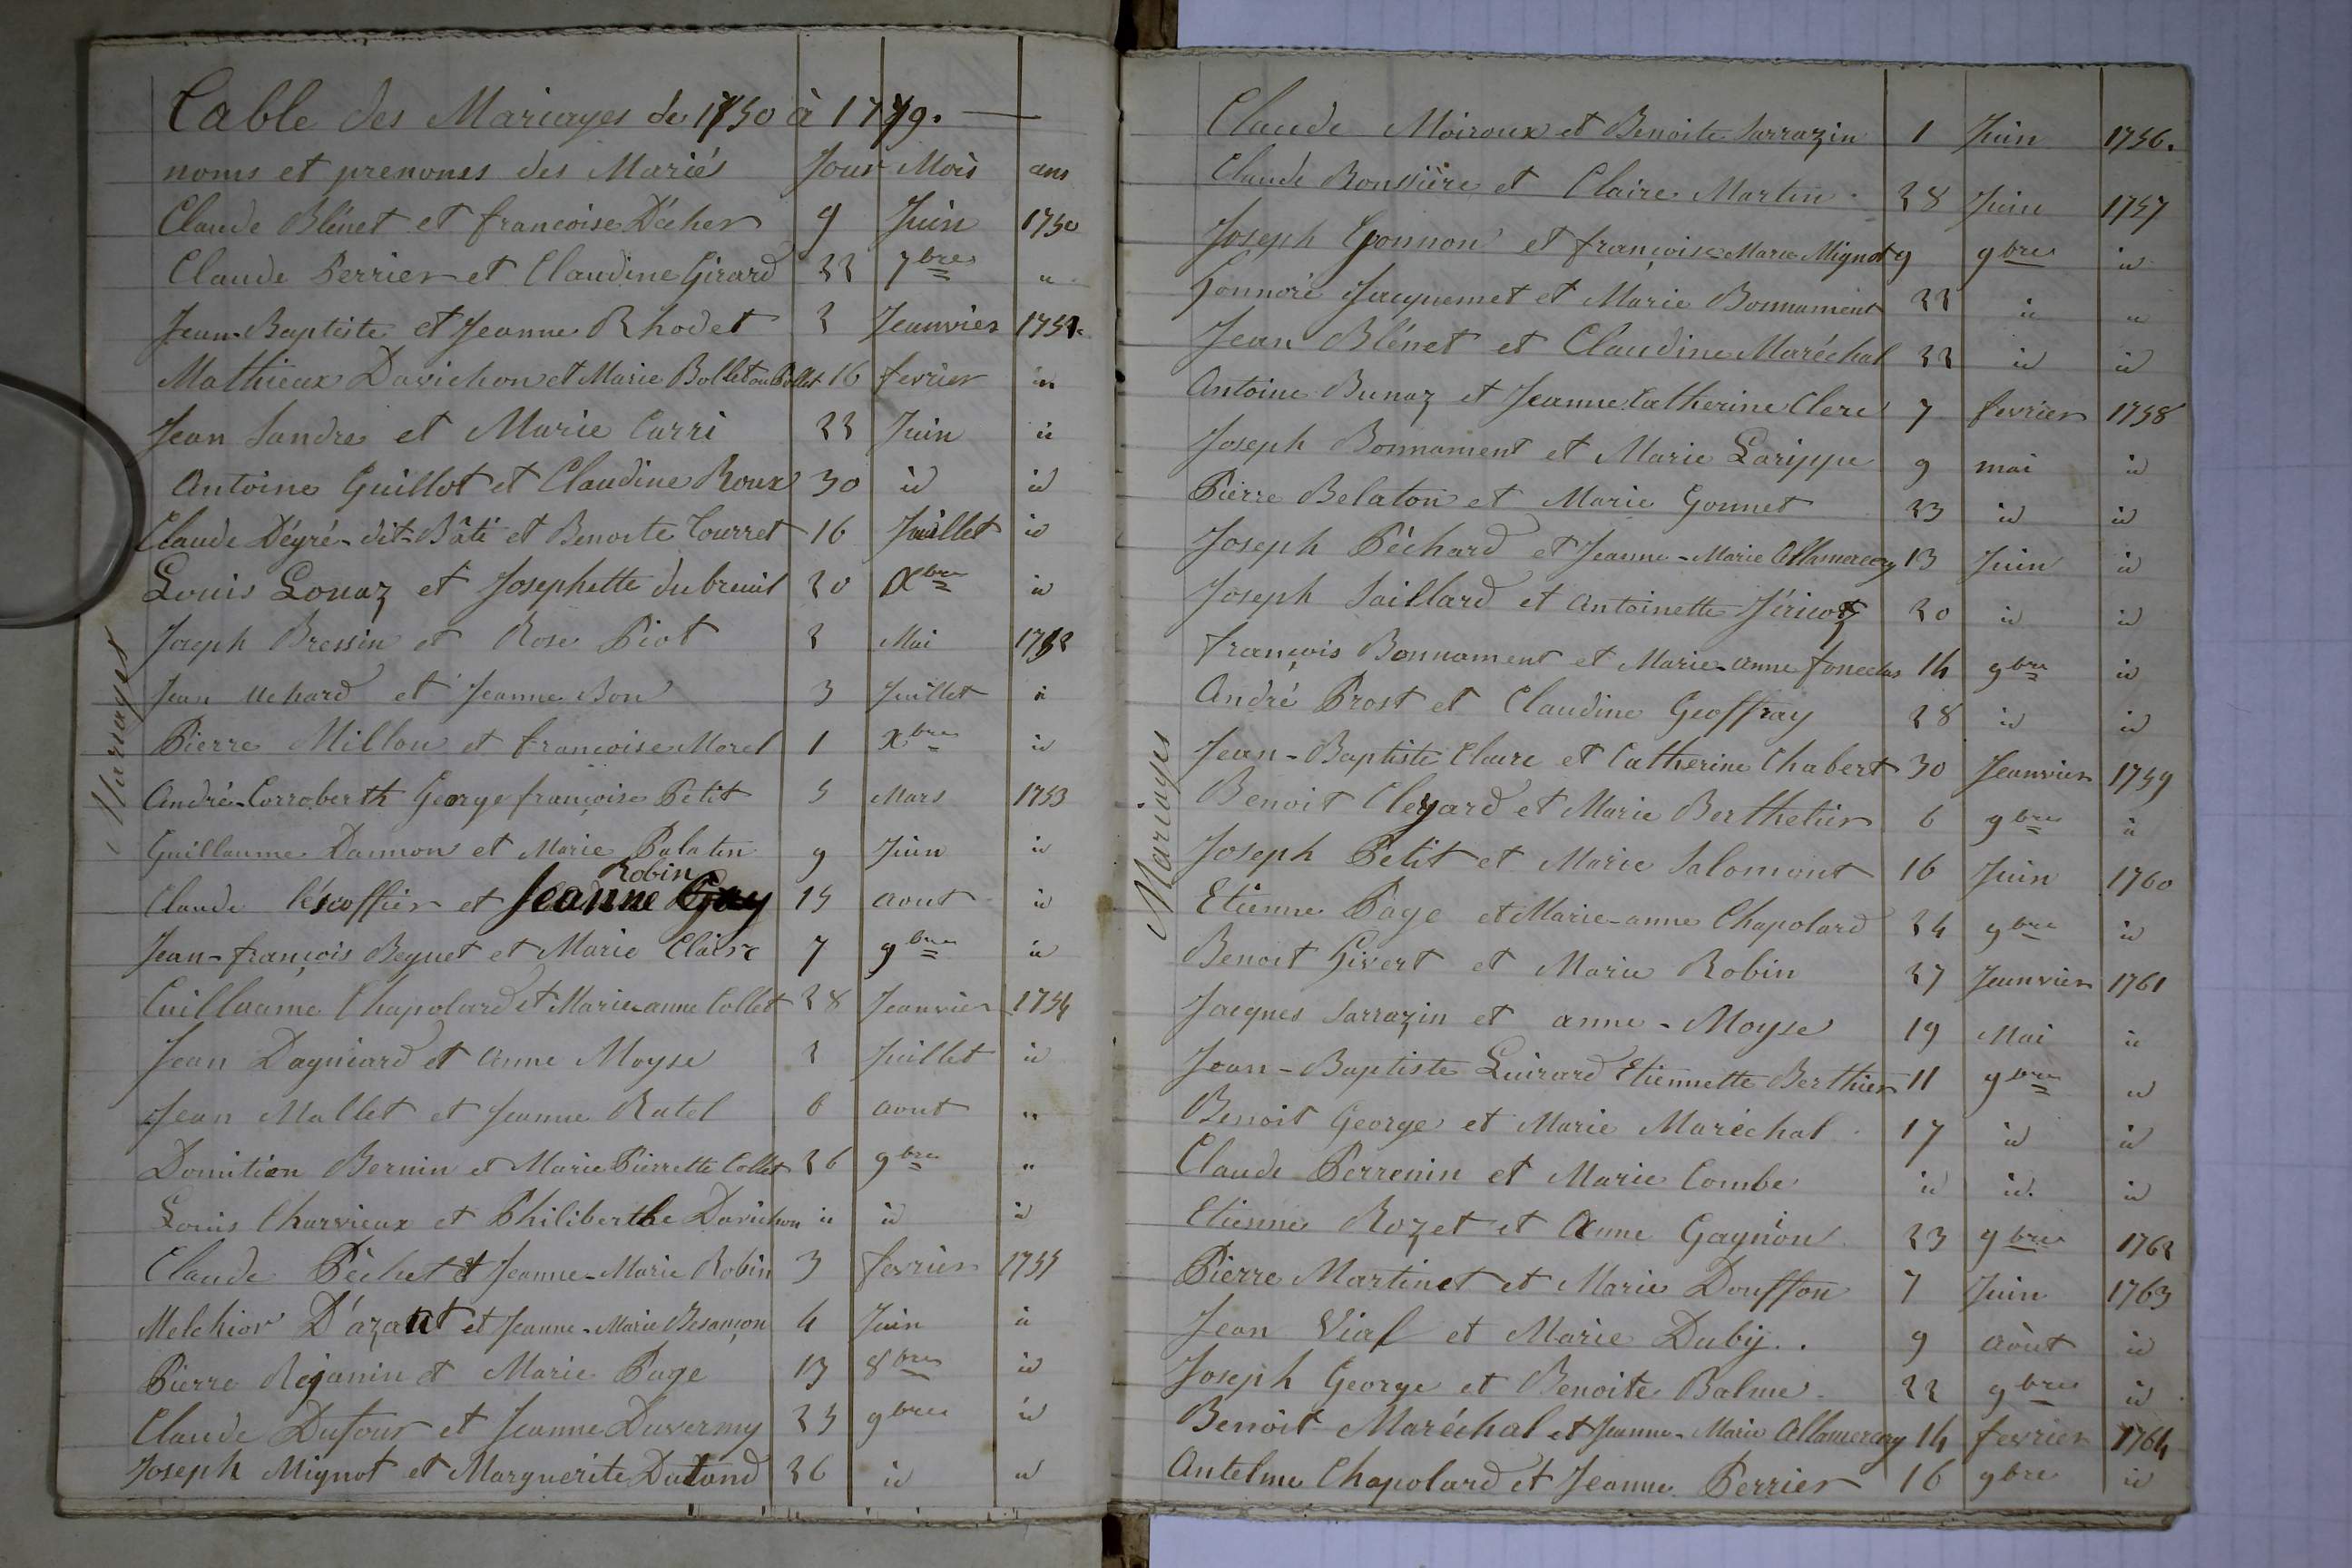 Table des Mariages de 1750 à 1779. —
noms et prenoms des Mariés Jour Mois ans
Claude Blénet et francoise Décher 9 Juin 1750
Claude Perrier et Claudine Girard 22 7bre "
Jean-Baptiste et Jeanne Rhodet 2 Jeanvier 1751.
Mathieux Davichon et Marie Bollet ou Collet 16 fevrier id
Jean Sandre et Marie Carri 22 Juin id
Antoine Guillot et Claudine Roux 30 id id
Claude Dégré-dit-Bâti et Benoite Tourret 16 Juillet id
Louis Louaz et Josephette dubreuil 20 Xbre id
Joseph Bressin et Rose Piot 2 Mai 1752
Jean Uchard et Jeanne Bon 3 Juillet id
Pierre Millon et francoise Morel 1 Xbre id
André-Corroberth George françoise Petit 5 Mars 1753
Guillaume Dannon et Marie Palatin 9 Juin id
Robin
Claude lescoffier et Jeanne Gay 15 aout id
Jean-françois Beguet et Marie Claire 7 9bre id
Guillaume Chapolard et Marie-anne Collet 28 Jeanvier 1754
Jean Dagniard et anne Moyse 2 Juillet id
Jean Mallet et Jeanne Ratel 6 aout "
Domitien Bernin et Marie Pierrette Collet 26 9bre "
Louis Charvieux et Philiberthe Davichon id id id
Claude Péchet et Jeanne-Marie Robin 3 fevrier 1755
Melchior D'azant et Jeanne-Marie Besançon 4 Juin id
Pierre Rejanin et Marie Page 13 8bre id
Claude Dufour et Jeanne Duvermy 25 9bre id
Joseph Mignot et Marguerite Dutand 26 id id
Mariages
Claude Moiroux et Benoite Sarrazin 1 Juin 1756.
Claude Boussière et Claire Martin 28 Juin 1757
Joseph Eponnon et françoise Marie Mignot 9 9bre id
Honnoré Jacquemet et Marie Bonnament 22 id id
Jean Blénet et Claudine Maréchal 22 id id
Antoine Bunaz et Jeanne Catherine Clerc 7 fevrier 1758
Joseph Bonnament et Marie Larippe 9 mai id
Pierre Belaton et Marie Gonnet 23 id id
Joseph Péchard et Jeanne-Marie Allamercery 13 Juin id
Joseph Saillard et Antoinette Jéricot 20 id id
françois Bonnament et Marie-anne foneclas 14 9bre id
André Prost et Claudine Geoffray 28 id id
Jean-Baptiste Claire et Catherine Chabert 30 Jeanvier 1759
Benoit Cleyard et Marie Berthelier 6 9bre id
Joseph Petit et Marie Salomont 16 Juin 1760
Etienne Page et Marie-anne Chapolard 24 9bre id
Benoit Givert et Marie Robin 27 Jeanvier 1761
Jacques Sarrazin et anne-Moyse 19 Mai id
Jean-Baptiste Luirard Etiennette Berthier 11 9bre id
Benoit George et Marie Maréchal 17 id id
Claude Perrenin et Marie Combe id id. id
Etienne Rozet et Anne Gagnon 23 9bre 1762
Pierre Martinet et Marie Douffon 7 Juin 1763
Jean Vial et Marie Duby.. 9 août id
Joseph George et Benoite Balme 22 9bre id
Benoit Maréchal et Jeanne-Marie Allamercery 14 fevrier 1764
Antelme Chapolard et Jeanne Perrier 16 9bre id
Mariages